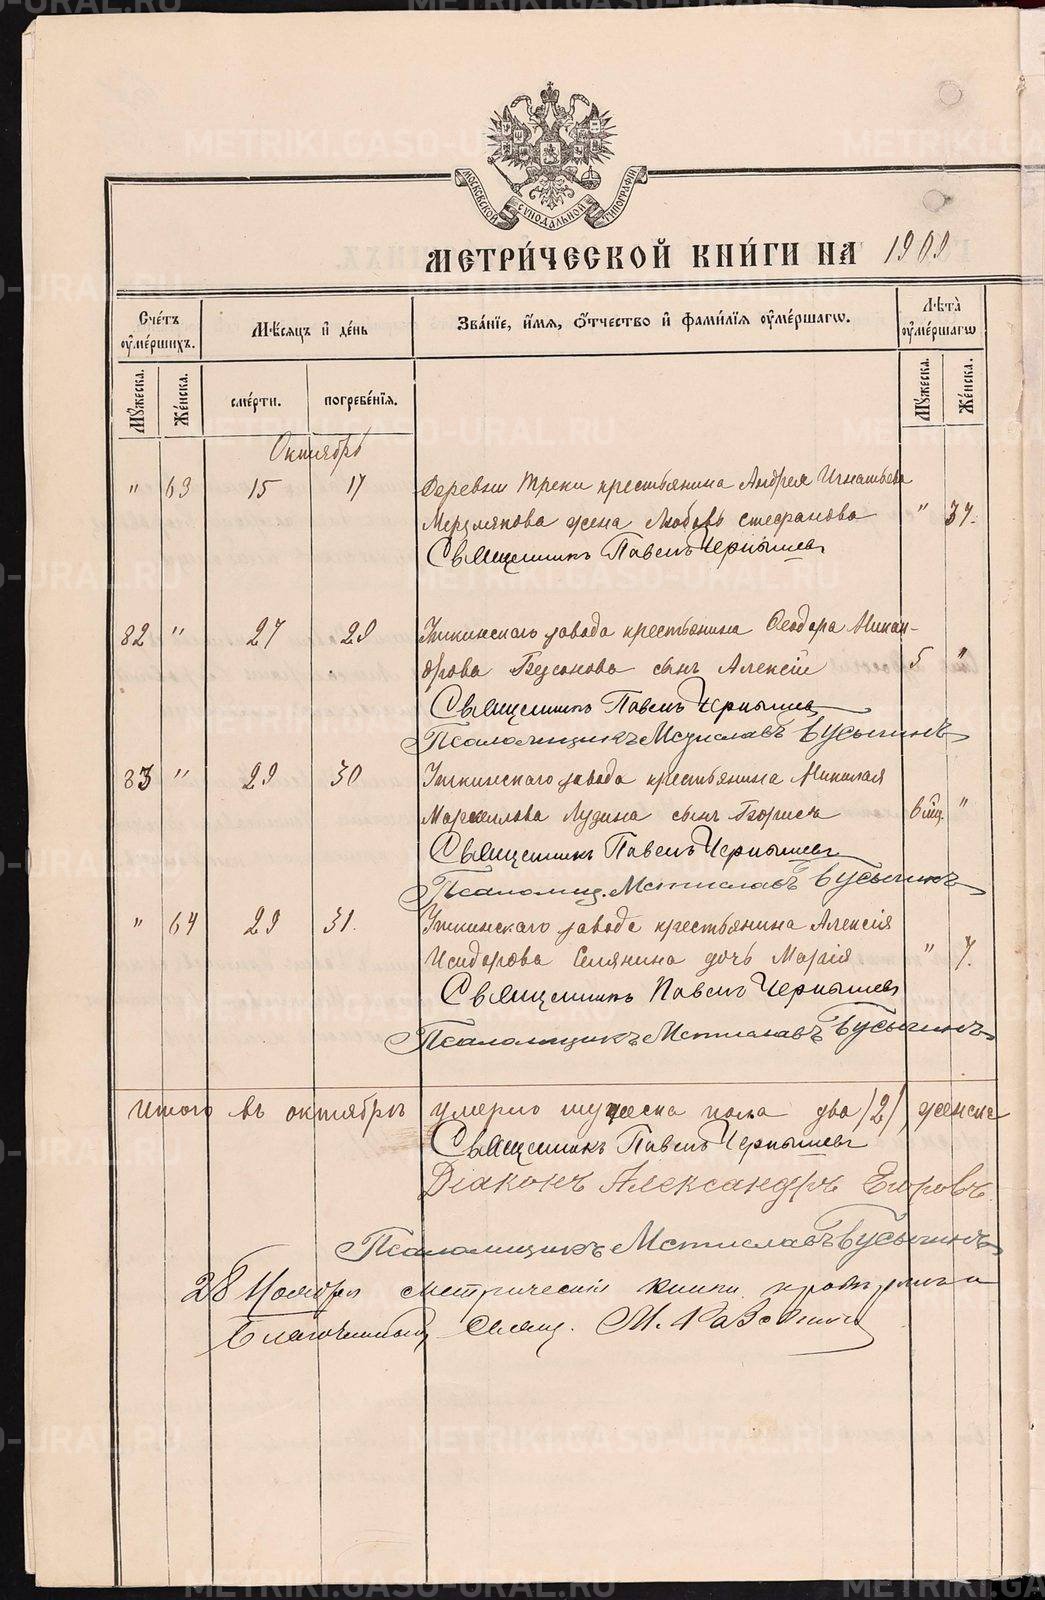 МОСКОВСКОЙ СѴНОДАЛЬНОЙ ТИПОГРАФІИ
МЕТРИ́ЧЕСКОЙ КНИ́ГИ НА 1909
Сче́тъ ᲂумершихъ.
Мѣсяцъ и҆ де́нь
Зва́нїе, и҆́мѧ, ѻ҆́тчество и҆ фами́лїѧ ᲂумершагѡ.
Лѣта̀ ᲂумершагѡ
Мꙋжеска.
Же́нска.
сме́рти.
погребе́нїѧ.
Мꙋжеска.
Же́нска.
Октябрь
" 63 15 17 Деревни Треки крестьянина Андрея Игнатьева
Мерзлякова жена Любовь Стефанова " 37.
Священникъ Павелъ Чернышев
82 " 27 29 Уткинскаго завода крестьянина Ѳеодора Никан-
дрова Бусонова сынъ Алексій 5 "
Священникъ Павелъ Чернышев
Псаломщикъ Мстиславъ Бусыгинъ
83 " 29 30 Уткинскаго завода крестьянина Николая
Маркеллова Лузина сынъ Борисъ 6 мц. "
Священникъ Павелъ Чернышев
Псаломщ. Мстиславъ Бусыгинъ
" 64 29 31. Уткинскаго завода крестьянина Алексія
Исидорова Селянина дочь Марія " 7.
Священникъ Павелъ Чернышев
Псаломщикъ Мстиславъ Бусыгинъ
Итого въ октябрѣ умерло мужеска пола два (2), женска
Священникъ Павелъ Чернышев
Діаконъ Александръ Егоровъ
Псаломщикъ Мстиславъ Бусыгинъ
28 Ноября метрическія книги
Благочинный Свящ. М.
METRIKI.GASO-URAL.RU